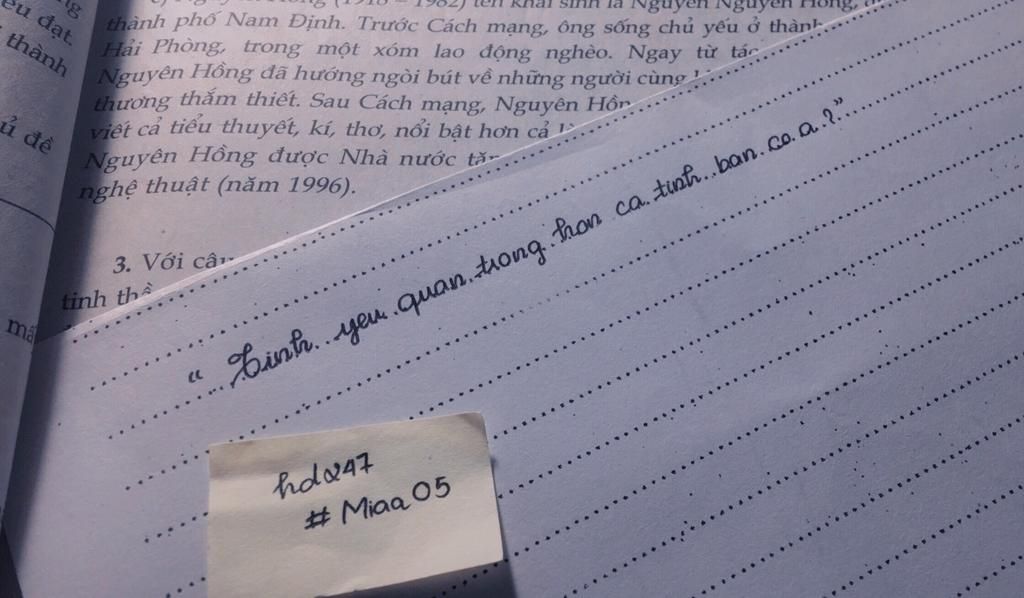 êu đạt.
thành
ủ đề
thành phố Nam Định. Trước Cách mạng, ông sống chủ yếu ở thành
Hải Phòng, trong một xóm lao động nghèo. Ngay từ tác
Nguyên Hồng đã hướng ngòi bút về những người cùng
thương thắm thiết. Sau Cách mạng, Nguyên Hồn
viết cả tiểu thuyết, kí, thơ, nổi bật hơn cả
Nguyên Hồng được Nhà nước tặ
nghệ thuật (năm 1996).
3. Với câu
tinh thầ
“ Tinh yeu quan trong hon ca tinh ban co a ? ”
hdx247
# Miaa 05